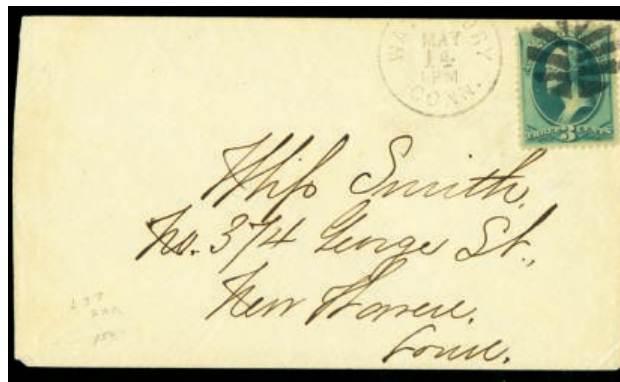 WATERBURY
MAY
14
1 PM
CONN.
THREE 3 CENTS
Miss Smith,
No. 374 George St.,
New Haven.
Conn.